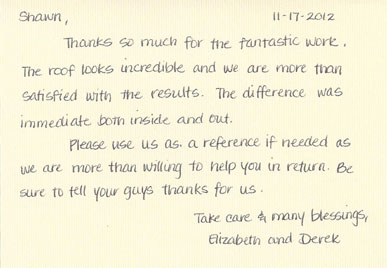 Shawn, 11-17-2012
Thanks so much for the fantastic work.
The roof looks incredible and we are more than
satisfied with the results. The difference was
immediate both inside and out.
Please use us as a reference if needed as
we are more than willing to help you in return. Be
sure to tell your guys thanks for us.
Take care & many blessings,
Elizabeth and Derek